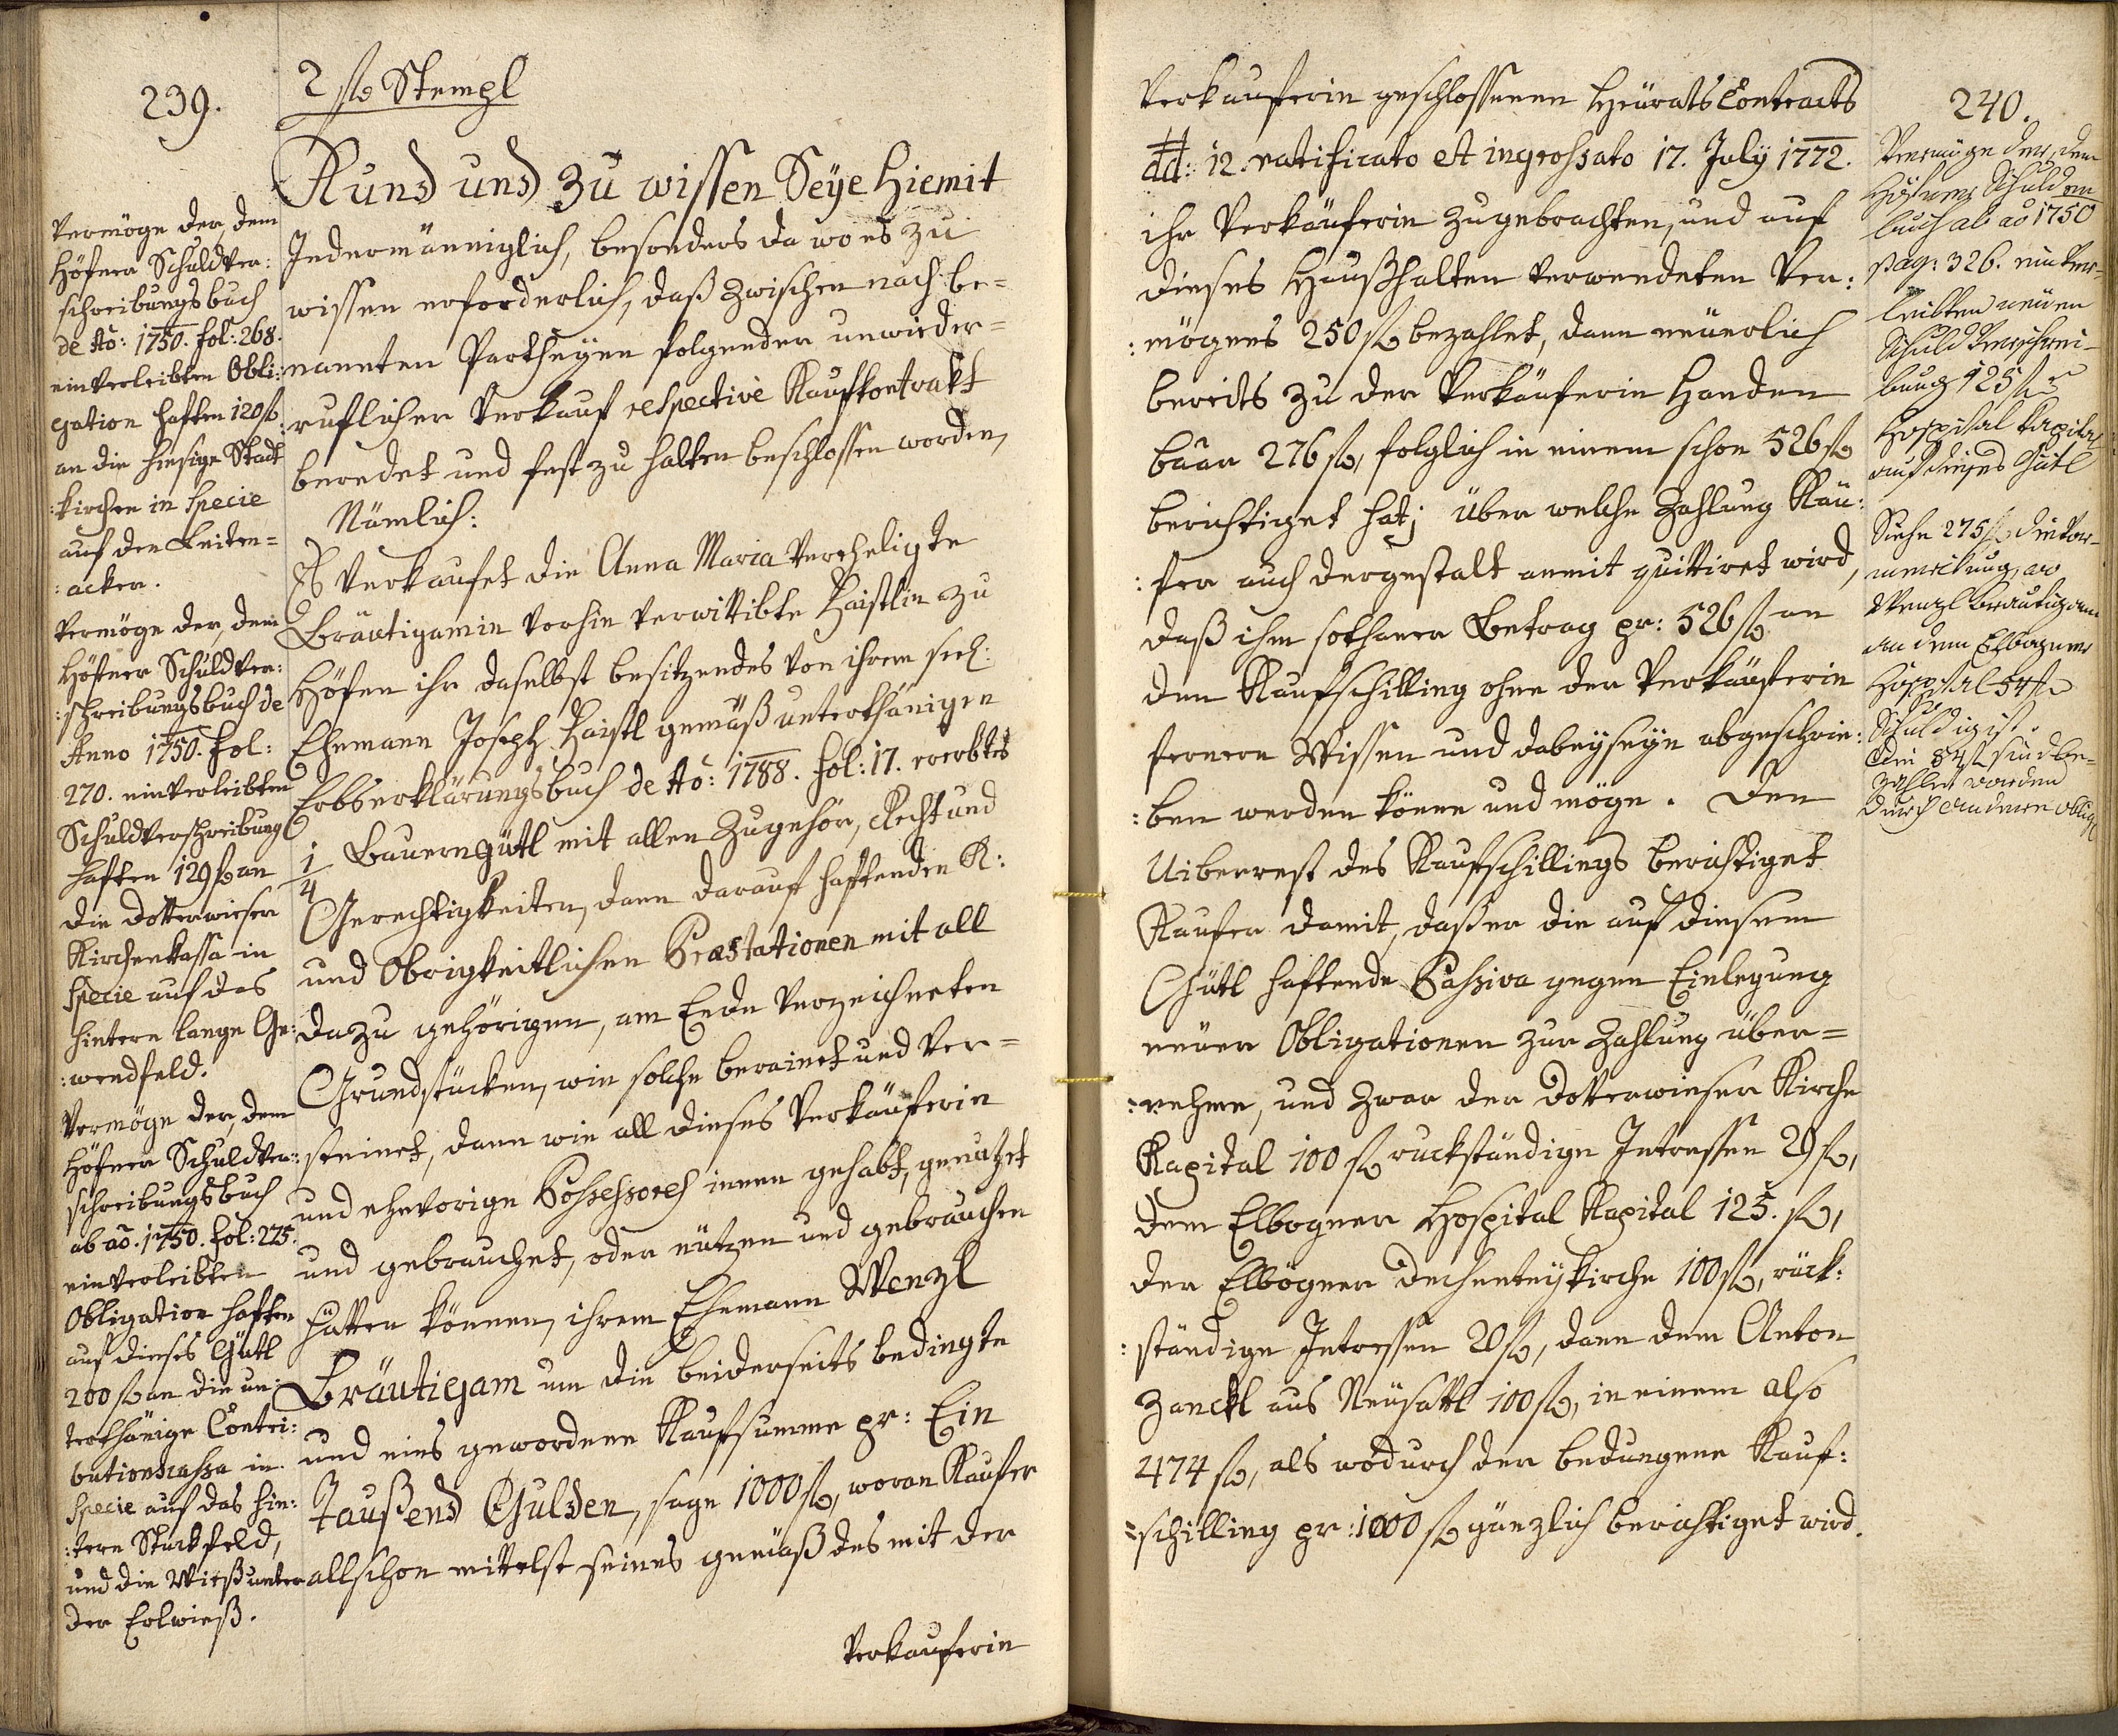 239.
2 f Stempl
Kund und zu wissen Seÿe hiemit
Jedermänniglich, besonders da wo es zu
wissen erforderlich, daß zwischen nach be=
nannten Partheyen folgender unwieder=
ruflicher Verkauf respective Kaufkontrakt
beredet und fest zu halten beschlossen worden,
Nämlich:
Es verkaufet die Anna Maria vereheligte
Bräutigamin vorhin verwittibte Haistlin zu
Höfen ihr daselbst besitzendes von ihrem seel:
Ehemann Joseph Haistl gemäß unterthänigen
Erbserklärungsbuch de Aõ: 1788. fol: 17. ererbtes
1/4 Bauerngütl mit allen Zugehör, Recht und
Gerechtigkeiten, dann darauf haftenden K:
und Obrigkeitlichen Præstationen mit all
dazu gehörigen, am Ende verzeichneten
Grundstücken, wie solche berainet und ver=
steinet, dann wie all dieses Verkäuferin
und ehevorige Possessores innen gehabt, genutzet
und gebrauchet, oder nützen und gebrauchen
hätten können, ihrem Ehemann Wenzl
Bräutigam um die beiderseits bedingte
und eins gewordene Kaufsumme pr: Ein
Taußend Gulden, sage 1000 f, woran Kaufer
allschon mittelst seines gemäß des mit der
Verkauferin
Vermöge der, dem
Höfner Schuldver:
schreibungsbuch
de Aõ: 1750. fol: 268.
einverleibten Obli:
gation haften 120 f
an die hiesige Stadt
:kirchen in Specie
auf den Leiten=
:acker.
Vermöge der, dem
Höfner Schuldver:
:schreibungsbuch de
Anno 1750. fol:
270. einverleibten
Schuldverschreibung
haften 129 f an
die Dotterwieser
Kirchenkassa in
Specie auf das
hintere lange Ge:
:wendfeld.
Vermöge der, dem
Höfner Schuldver:
schreibungsbuch
ab aõ. 1750. fol: 275.
einverleibten
Obligation haften
auf dieses Gütl
200 f an die un:
terthänige Contri:
butionskassa in
Specie auf das hin:
:tere Stuckfeld,
und die Wieß unter
der Erlwieß.
Verkauferin geschlossenen Heurats Contracts
dd: 12. ratificato et ingrossato 17. Julÿ 1772.
ihr Verkäuferin zugebrachten, und auf
dieses Haußhalten verwendeten Ver:
:mögens 250 f bezahlet, dann neuerlich
bereits zu der Verkäuferin Handen
baar 276 f, folglich in einem schon 526 f
berichtiget hat; über welche Zahlung Käu:
:fer auch dergestalt anmit quittiret wird,
daß ihm sothaner Betrag pr: 526 f an
den Kaufschilling ohne der Verkäuferin
fernern Wissen und dabeyseyn abgeschrie:
:ben werden könne und möge. Den
Uiberrest des Kaufschillings berichtiget
Kaufer damit, daß er die auf diesem
Gütl haftende Passiva gegen Einlegung
neuer Obligationen zur Zahlung über=
:nehme, und zwar der Dotterwieser Kirche
Kapital 100 f ruckständige Intressen 29 f,
dem Elbogner Hospital Kapital 125. f,
der Elbogner Dechenteykirche 100 f, rück:
:ständige Intressen 20 f, dann dem Anton
Zanckl aus Neusattl 100 f, in einem also
474 f, als wodurch der bedungene Kauf:
=schilling pr: 1000 f gänzlich berichtiget wird.
240.
Vermöge der, dem
Höfner Schulden
buch ab aõ 1750
pag: 326. einver=
leibten neuen
Schuld Verschrei=
bung 125 f
Hospital Kapital
auf dieses Gütl
Siehe 275 f die Vor=
merkung, wo
Wenzl Bräutigam
an dem Elbogner
Hospital 54 f
Schuldig ist.
Die 54 f sind be=
zahlet worden
durch andere oblig